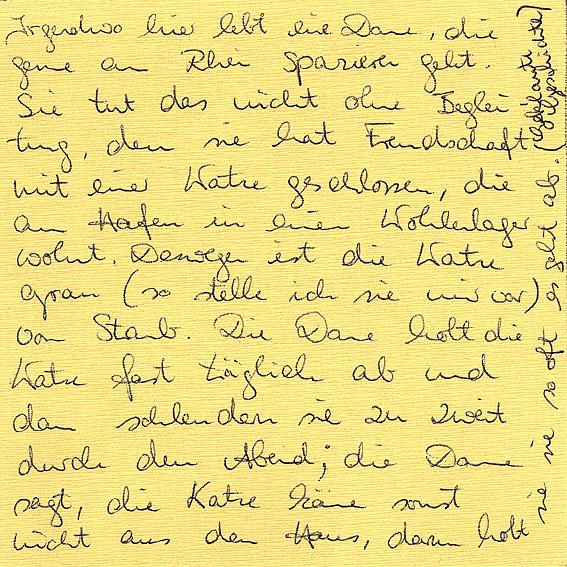 Irgendwo hier lebt eine Dame, die
gerne am Rhein spazieren geht.
Sie tut das nicht ohne Beglei-
tung, denn sie hat Freundschaft
mit einer Katze geschlossen, die
am Hafen in einem Kohlenlager
wohnt. Deswegen ist die Katze
grau (so stelle ich sie mir vor)
vom Staub. Die Dame holt die
Katze fast täglich ab und
dann schlendern sie zu zweit
durch den Abend; die Dame
sagt, die Katze käme sonst
nicht aus dem Haus, darum holt
sie sie so oft es geht ab.